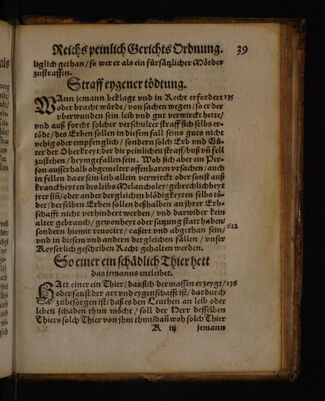 Reichs peinlich Gerichts Ordnung. 39
liglich gethan / so wer er als ein fürsätzlicher Mörder
zustraffen.
Straff eygener tödtung.
WAnn jemant beklagt vnd in Recht erfordert 135
oder bracht würde / von sachen wegen / so er der
vberwunden sein leib vnd gut verwirckt hette /
vnd auß forcht solcher verschulter straff sich selbs er-
tödt / des Erben sollen in diesem fall seins guts nicht
vehig oder empfenglich / sondern solch Erb vnd Gü-
ter der Oberkeyt der die peinlichen straff / buß vñ fell
zustehen / heymgefallen sein. Wo sich aber ein Per-
son ausserhalb obgemelter offenbaren vrsachen / auch
in fellen da er sein leib allein verwirckt oder sonst auß
kranckheyten des leibs Melancoley / gebrechlicheyt
jrer siñ / oder ander dergleichen blödigkeyten selbs töd-
tet / der selben Erben sollen deßhalben an jhrer Erb-
schafft nicht verhindert werden / vnd darwider kein
alter gebrauch / gewonheyt oder satzung statt haben /
sondern hiemit reuocirt / cassirt vnd abgethan sein /
vnd in diesem vnd andern dergleichen fällen / vnser
Keyserlich geschriben Recht gehalten werden.
So einer ein schädlich Thier hett
das jemanns entleibet.
HAtt einer ein Thier / das sich dermassen erzeygt / 136
oder sonst der art vnd eygenschafft ist / dardurch
zubesorgen ist / daß es den Leuthen an leib oder
leben schaden thun möcht / soll der Herr desselben
Thiers solch Thier von jhm thun / dañ woh solch Thier
K iij jemant